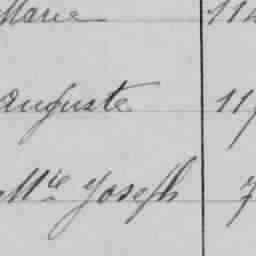 Marie 114
Auguste 117
Mie Joseph 7